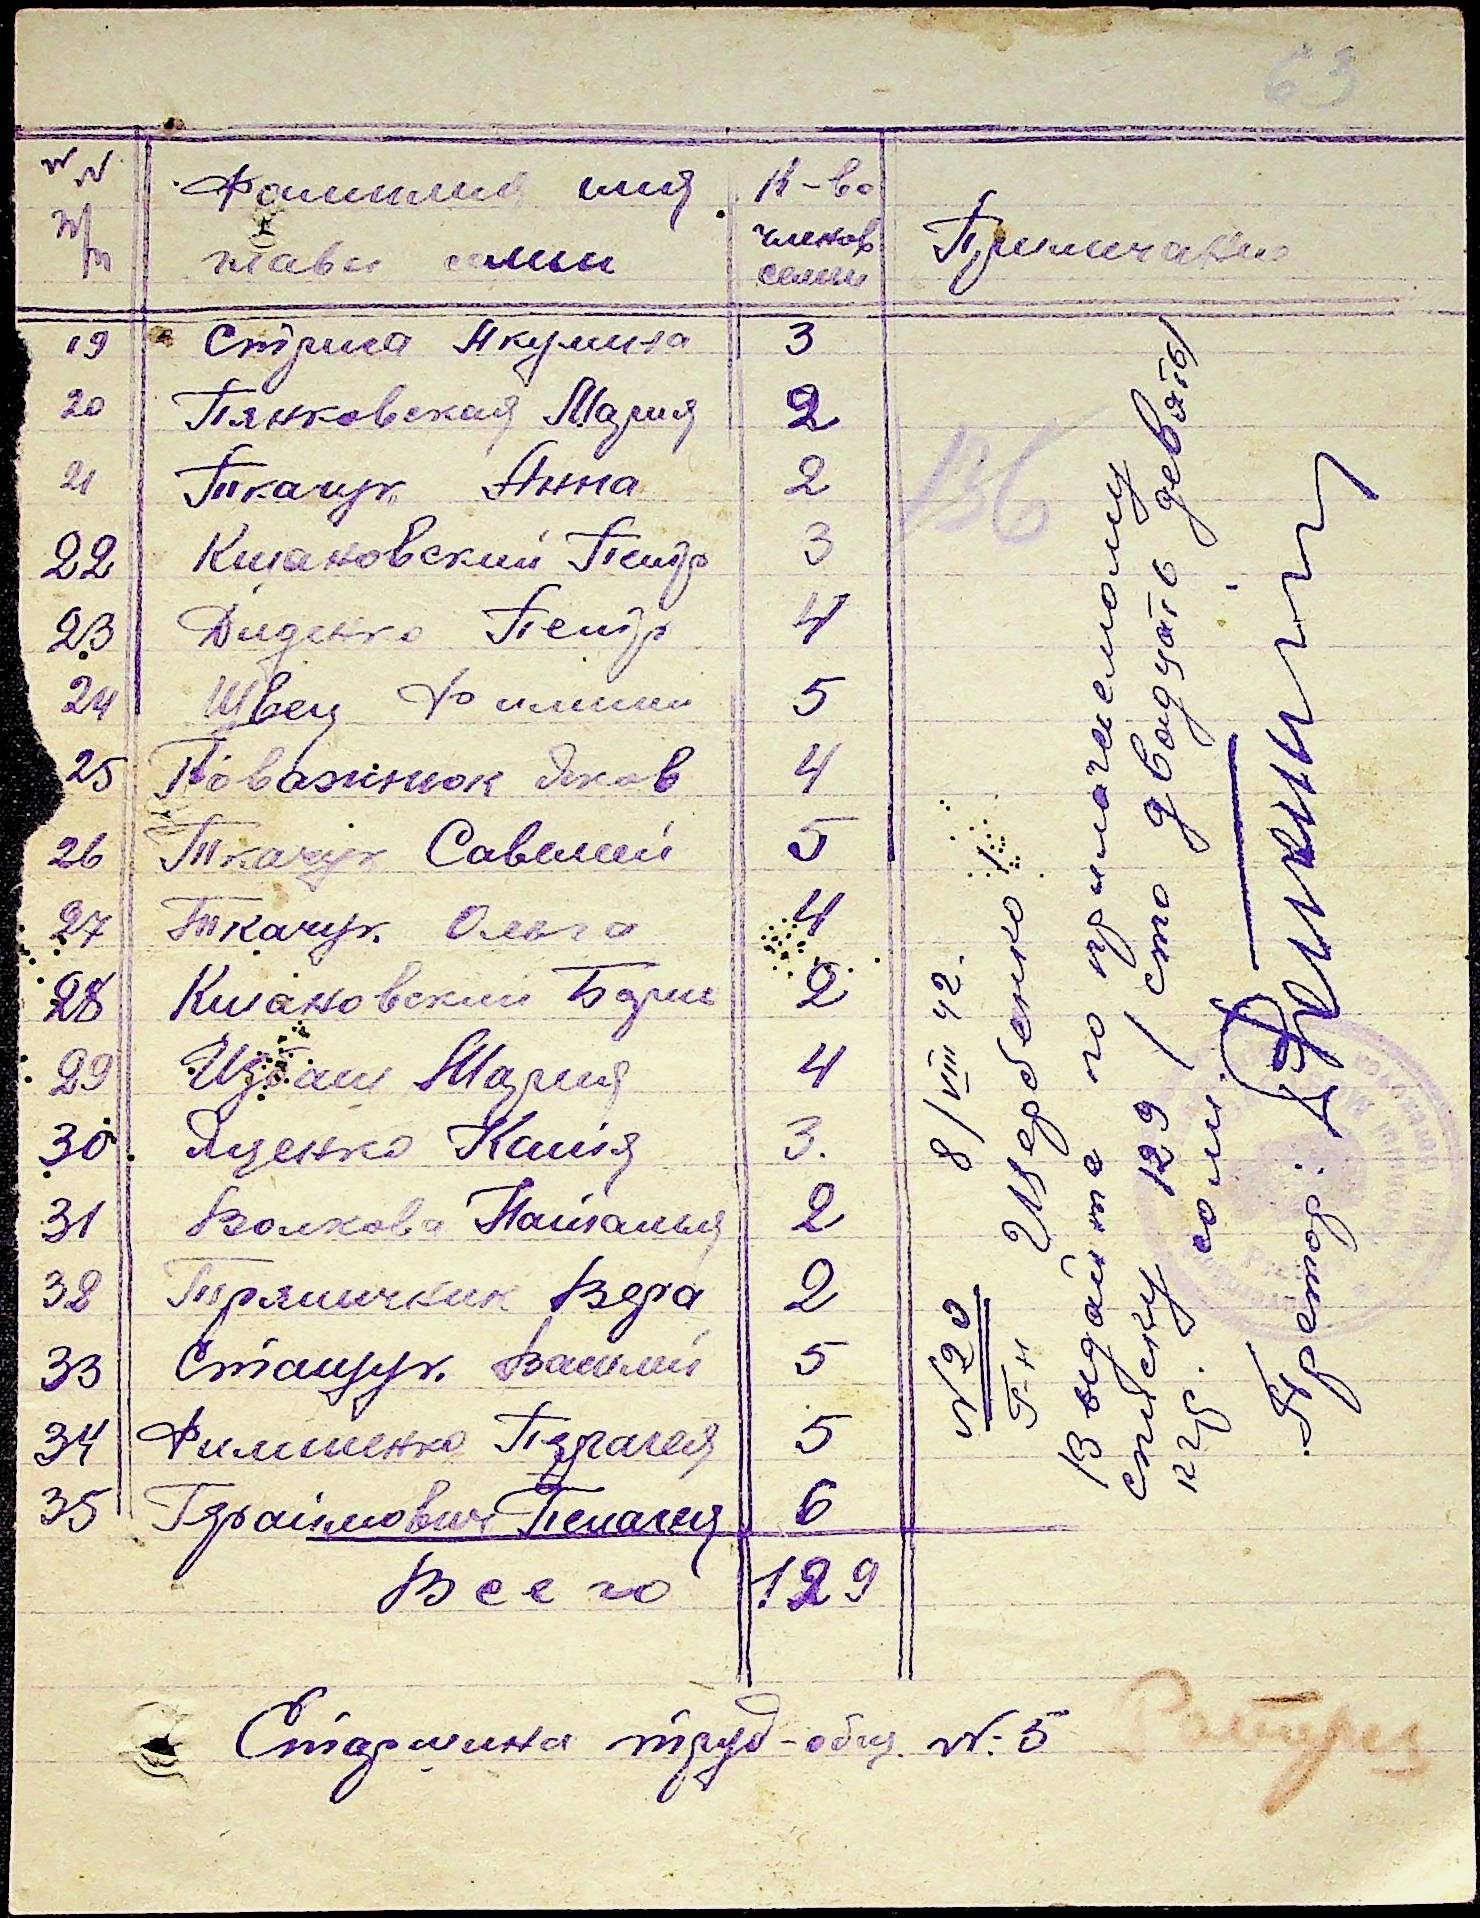 63
№№ п/п Фамилия имя главы семьи К-во членов семьи Примечание
19 Стрига Акулина 3
20 Пянковская Мария 2
21 Ткачук Анна 2
22 Кишановский Петр 3
23 Диденко Петр 4
24 Швец Филипп 5
25 Поважнюк Яков 4
26 Ткачук Савелий 5
27 Ткачук Ольга 4
28 Кишановский Борис 2
29 Избаш Мария 4
30 Яценко Катя 3.
31 Волкова Наталья 2
32 Тряпичник Вера 2
33 Стащук Василий 5
34 Филипенко 5
35 Пелагея 6
Всего 129
Старшина труд-общ. №: 5
136
№20 8/VIII 42.
Г-н Щербенко!
Выдайте по прилагаемому
списку 129 /сто двадцать девять/
кгр. соли.
Претор: